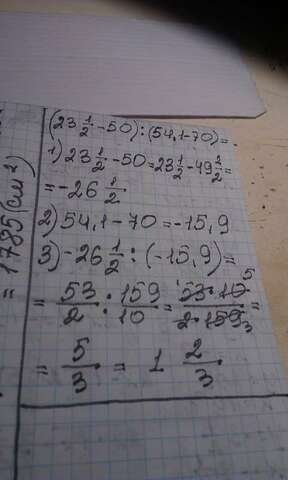 (23 1/2 - 50) : (54,1 - 70) = .
1) 23 1/2 - 50 = 23 1/2 - 49 2/2 =
= - 26 1/2
2) 54,1 - 70 = -15,9
3) - 26 1/2 : (-15,9) =
= 53/2 : 159/10 = 53·10 5/2·159 3 =
= 5/3 = 1 2/3
= 1785 (см²)